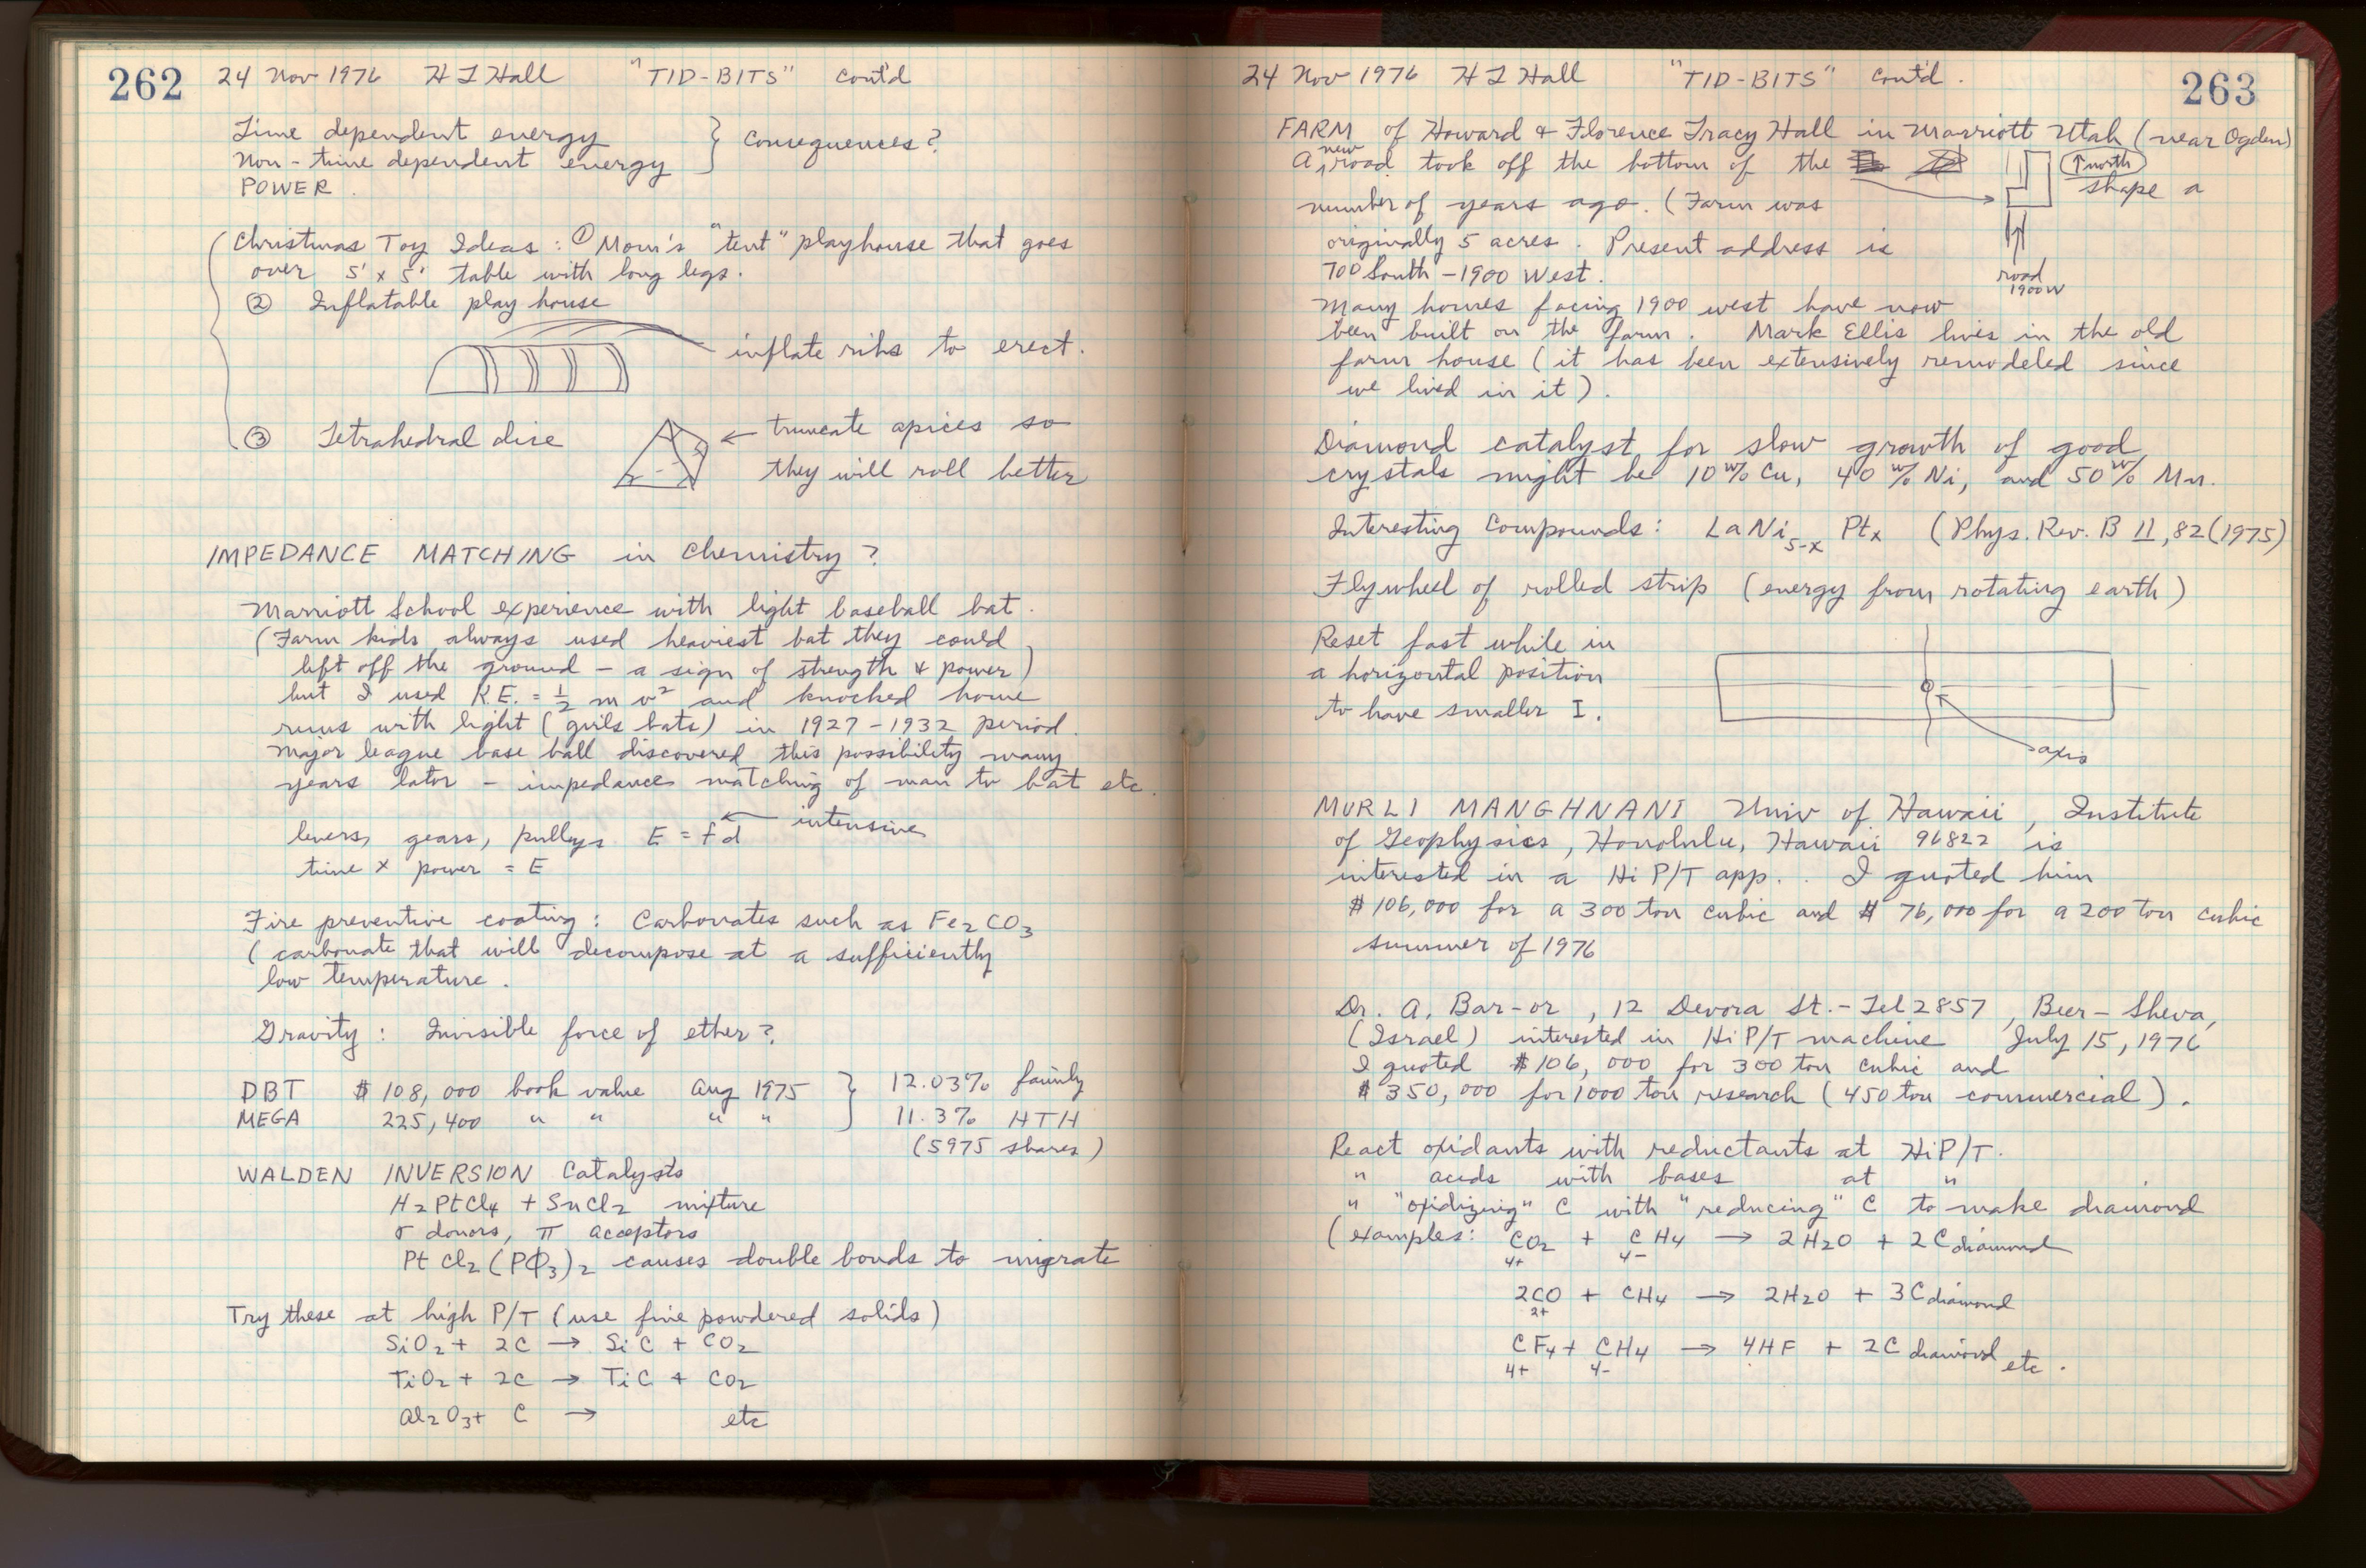 262 24 Nov 1976 H T Hall "TID-BITS" Cont'd
Time dependent energy
Non-time dependent energy } Consequences?
POWER.
Christmas Toy Ideas: ① Mom's "tent" playhouse that goes
over 5' x 5' table with long legs.
② Inflatable play house
inflate ribs to erect.
③ Tetrahedral dice ← truncate apices so
they will roll better
IMPEDANCE MATCHING in Chemistry?
Marriott School experience with light baseball bat.
(Farm kids always used heaviest bat they could
lift off the ground – a sign of strength & power)
but I used K.E. = ½ m v² and knocked home
runs with light (girls bats) in 1927-1932 period.
Major league base ball discovered this possibility many
years later – impedance matching of man to bat etc.
levers, gears, pulleys E = fd ← intensive
time x power = E
Fire preventive coating: Carbonates such as Fe₂CO₃
(carbonate that will decompose at a sufficiently
low temperature.
Gravity: Invisible force of ether?
DBT $108,000 book value Aug 1975 } 12.03% family
MEGA 225,400 " " " " 11.3% HTH
(5975 shares)
WALDEN INVERSION Catalysts
H₂PtCl₄ + SnCl₂ mixture
σ donors, π acceptors
PtCl₂(PΦ₃)₂ causes double bonds to migrate
Try these at high P/T (use fine powdered solids)
SiO₂ + 2C → SiC + CO₂
TiO₂ + 2C → TiC + CO₂
Al₂O₃ + C → etc
24 Nov 1976 H T Hall "TID-BITS" Cont'd. 263
FARM of Howard & Florence Tracy Hall in Marriott Utah (near Ogden)
A new road took off the bottom of the ↑ north
shape a
number of years ago. (Farm was
originally 5 acres. Present address is
700 South – 1900 West.
road
1900 W
Many homes facing 1900 west have now
been built on the farm. Mark Ellis lives in the old
farm house (it has been extensively remodeled since
we lived in it).
Diamond catalyst for slow growth of good
crystals might be 10 w/o Cu, 40 w/o Ni, and 50 w/o Mn.
Interesting Compounds: LaNi₅₋ₓ Ptₓ (Phys. Rev. B 11, 82 (1975)
Flywheel of rolled strip (energy from rotating earth)
Reset fast while in
a horizontal position
to have smaller I.
axis
MURLI MANGHNANI Univ of Hawaii, Institute
of Geophysics, Honolulu, Hawaii 96822 is
interested in a Hi P/T app.. I quoted him
$106,000 for a 300 ton cubic and $76,000 for a 200 ton cubic
summer of 1976
Dr. A. Bar-or, 12 Devora St. – Tel 2857, Beer-Sheva,
(Israel) interested in Hi P/T machine July 15, 1976
I quoted $106,000 for 300 ton cubic and
$350,000 for 1000 ton research (450 ton commercial).
React oxidants with reductants at Hi P/T.
" acids with bases at "
" "oxidizing" C with "reducing" C to make diamond
(examples: CO₂ + CH₄ → 2H₂O + 2C diamond
4+ 4-
2CO + CH₄ → 2H₂O + 3C diamond
2+
CF₄ + CH₄ → 4HF + 2C diamond etc.
4+ 4-